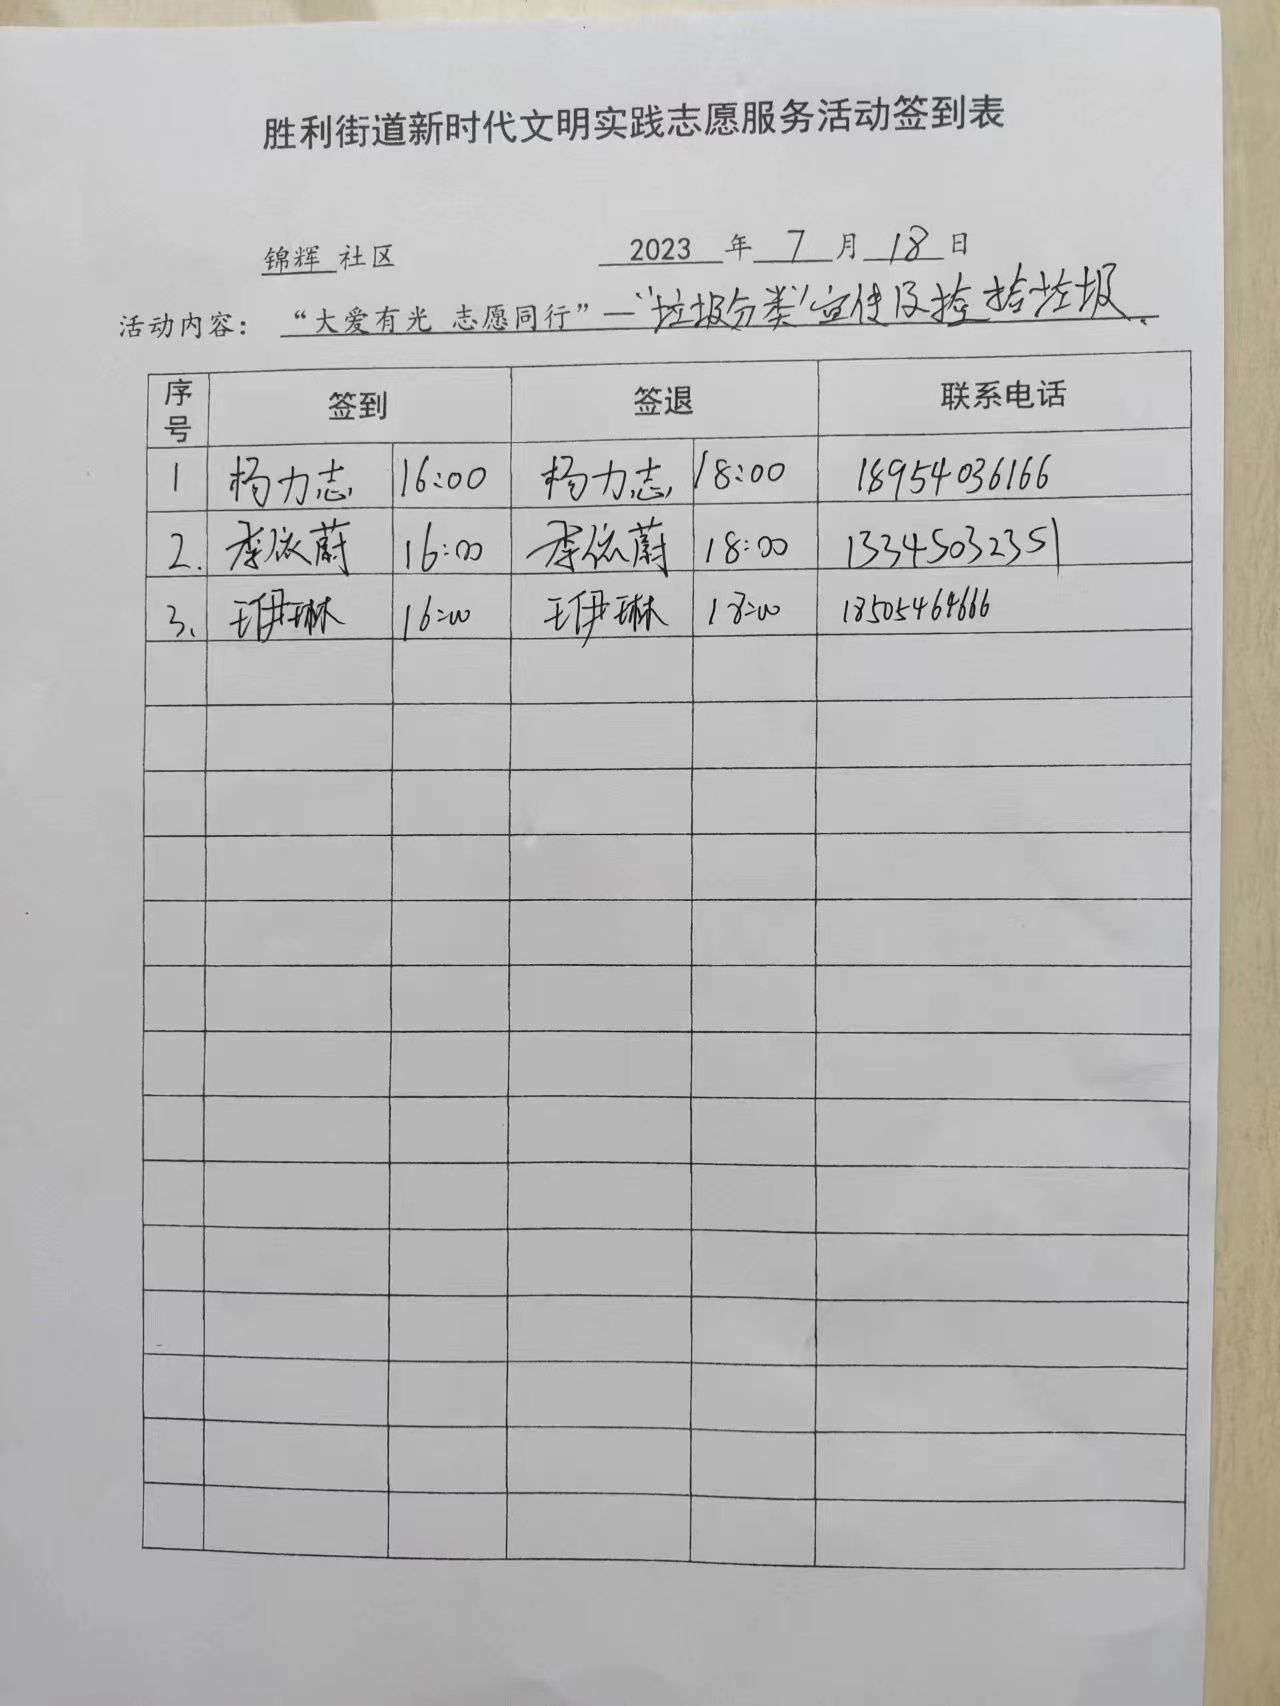 胜利街道新时代文明实践志愿服务活动签到表
锦辉 社区 2023 年 7 月 18 日
活动内容：“大爱有光 志愿同行”—“垃圾分类”宣传及捡拾垃圾.
序号 签到 签退 联系电话
1 杨力志 16:00 杨力志 18:00 18954036166
2. 李依蔚 16:00 李依蔚 18:00 13345032351
3. 王伊琳 16:00 王伊琳 18:00 18505464666